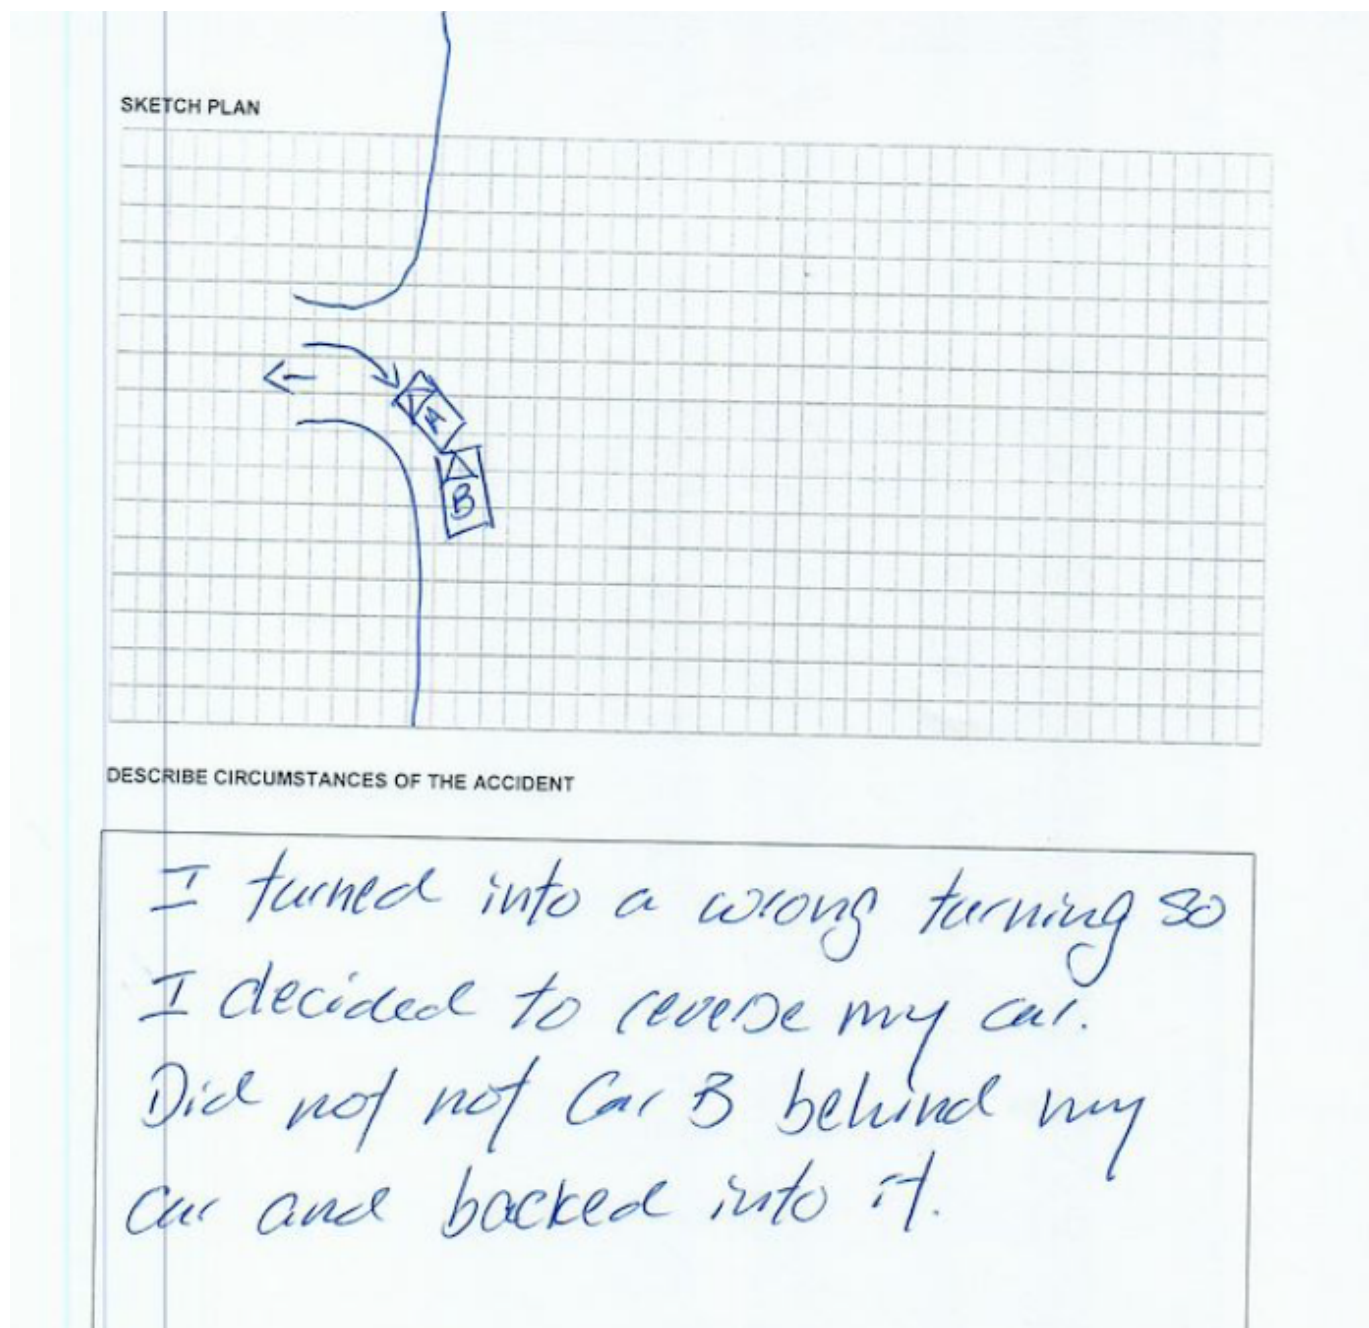 SKETCH PLAN
A
B
DESCRIBE CIRCUMSTANCES OF THE ACCIDENT
I turned into a wrong turning so
I decided to reverse my car.
Did not not Car B behind my
car and backed into it.